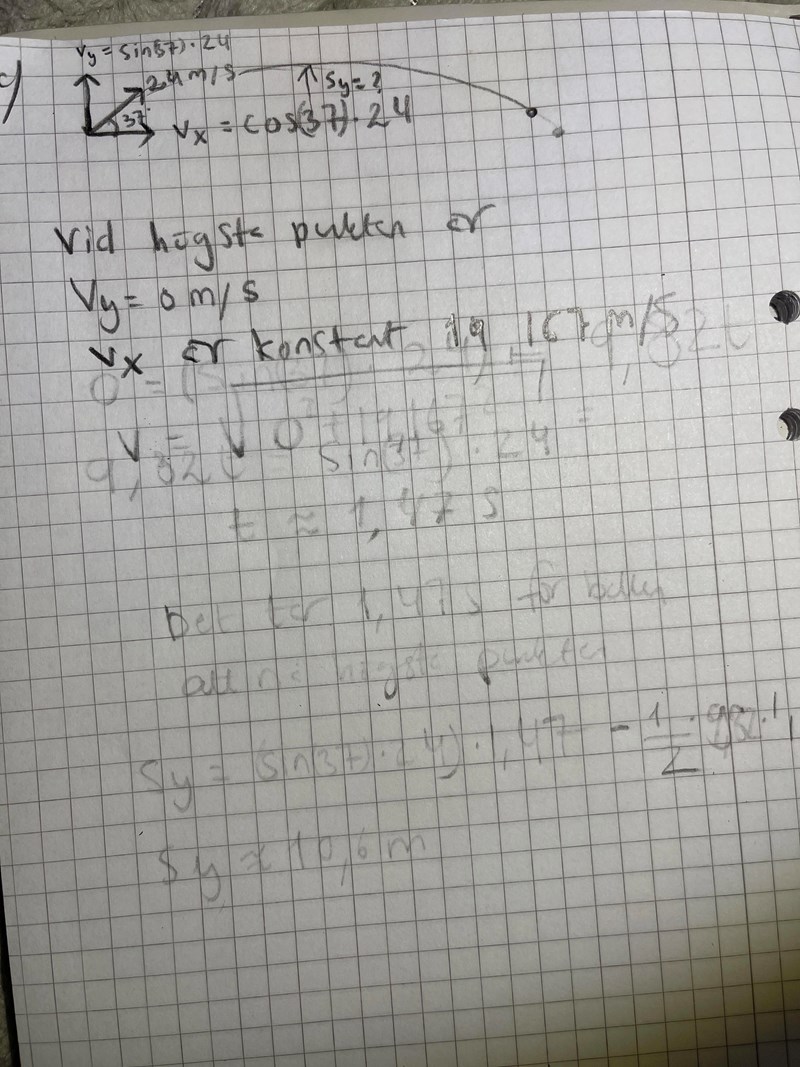 Vy = sin(37) · 24
24 m/s
Sy = ?
37°
Vx = cos(37) · 24
Vid högsta punkten är
Vy = 0 m/s
Vx är konstant 19,167 m/s
V = √
9,82t = sin(37) · 24
t ≈ 1,47 s
Det tar 1,47 s för bollen
att nå högsta punkten
Sy = (sin37) · 24) · 1,47 - 1/2 · 982 · 1,
Sy ≈ 10,6 m